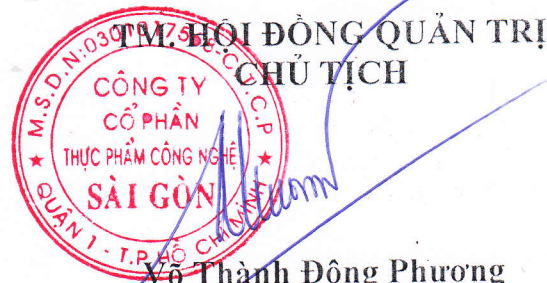 TM. HỘI ĐỒNG QUẢN TRỊ
CHỦ TỊCH
M.S.D.N:030
C.T.C.P
CÔNG TY
CỔ PHẦN
THỰC PHẨM CÔNG NGHỆ
SÀI GÒN
QUẬN 1 - T.P HỒ CHÍ MINH
Võ Thành Đông Phương